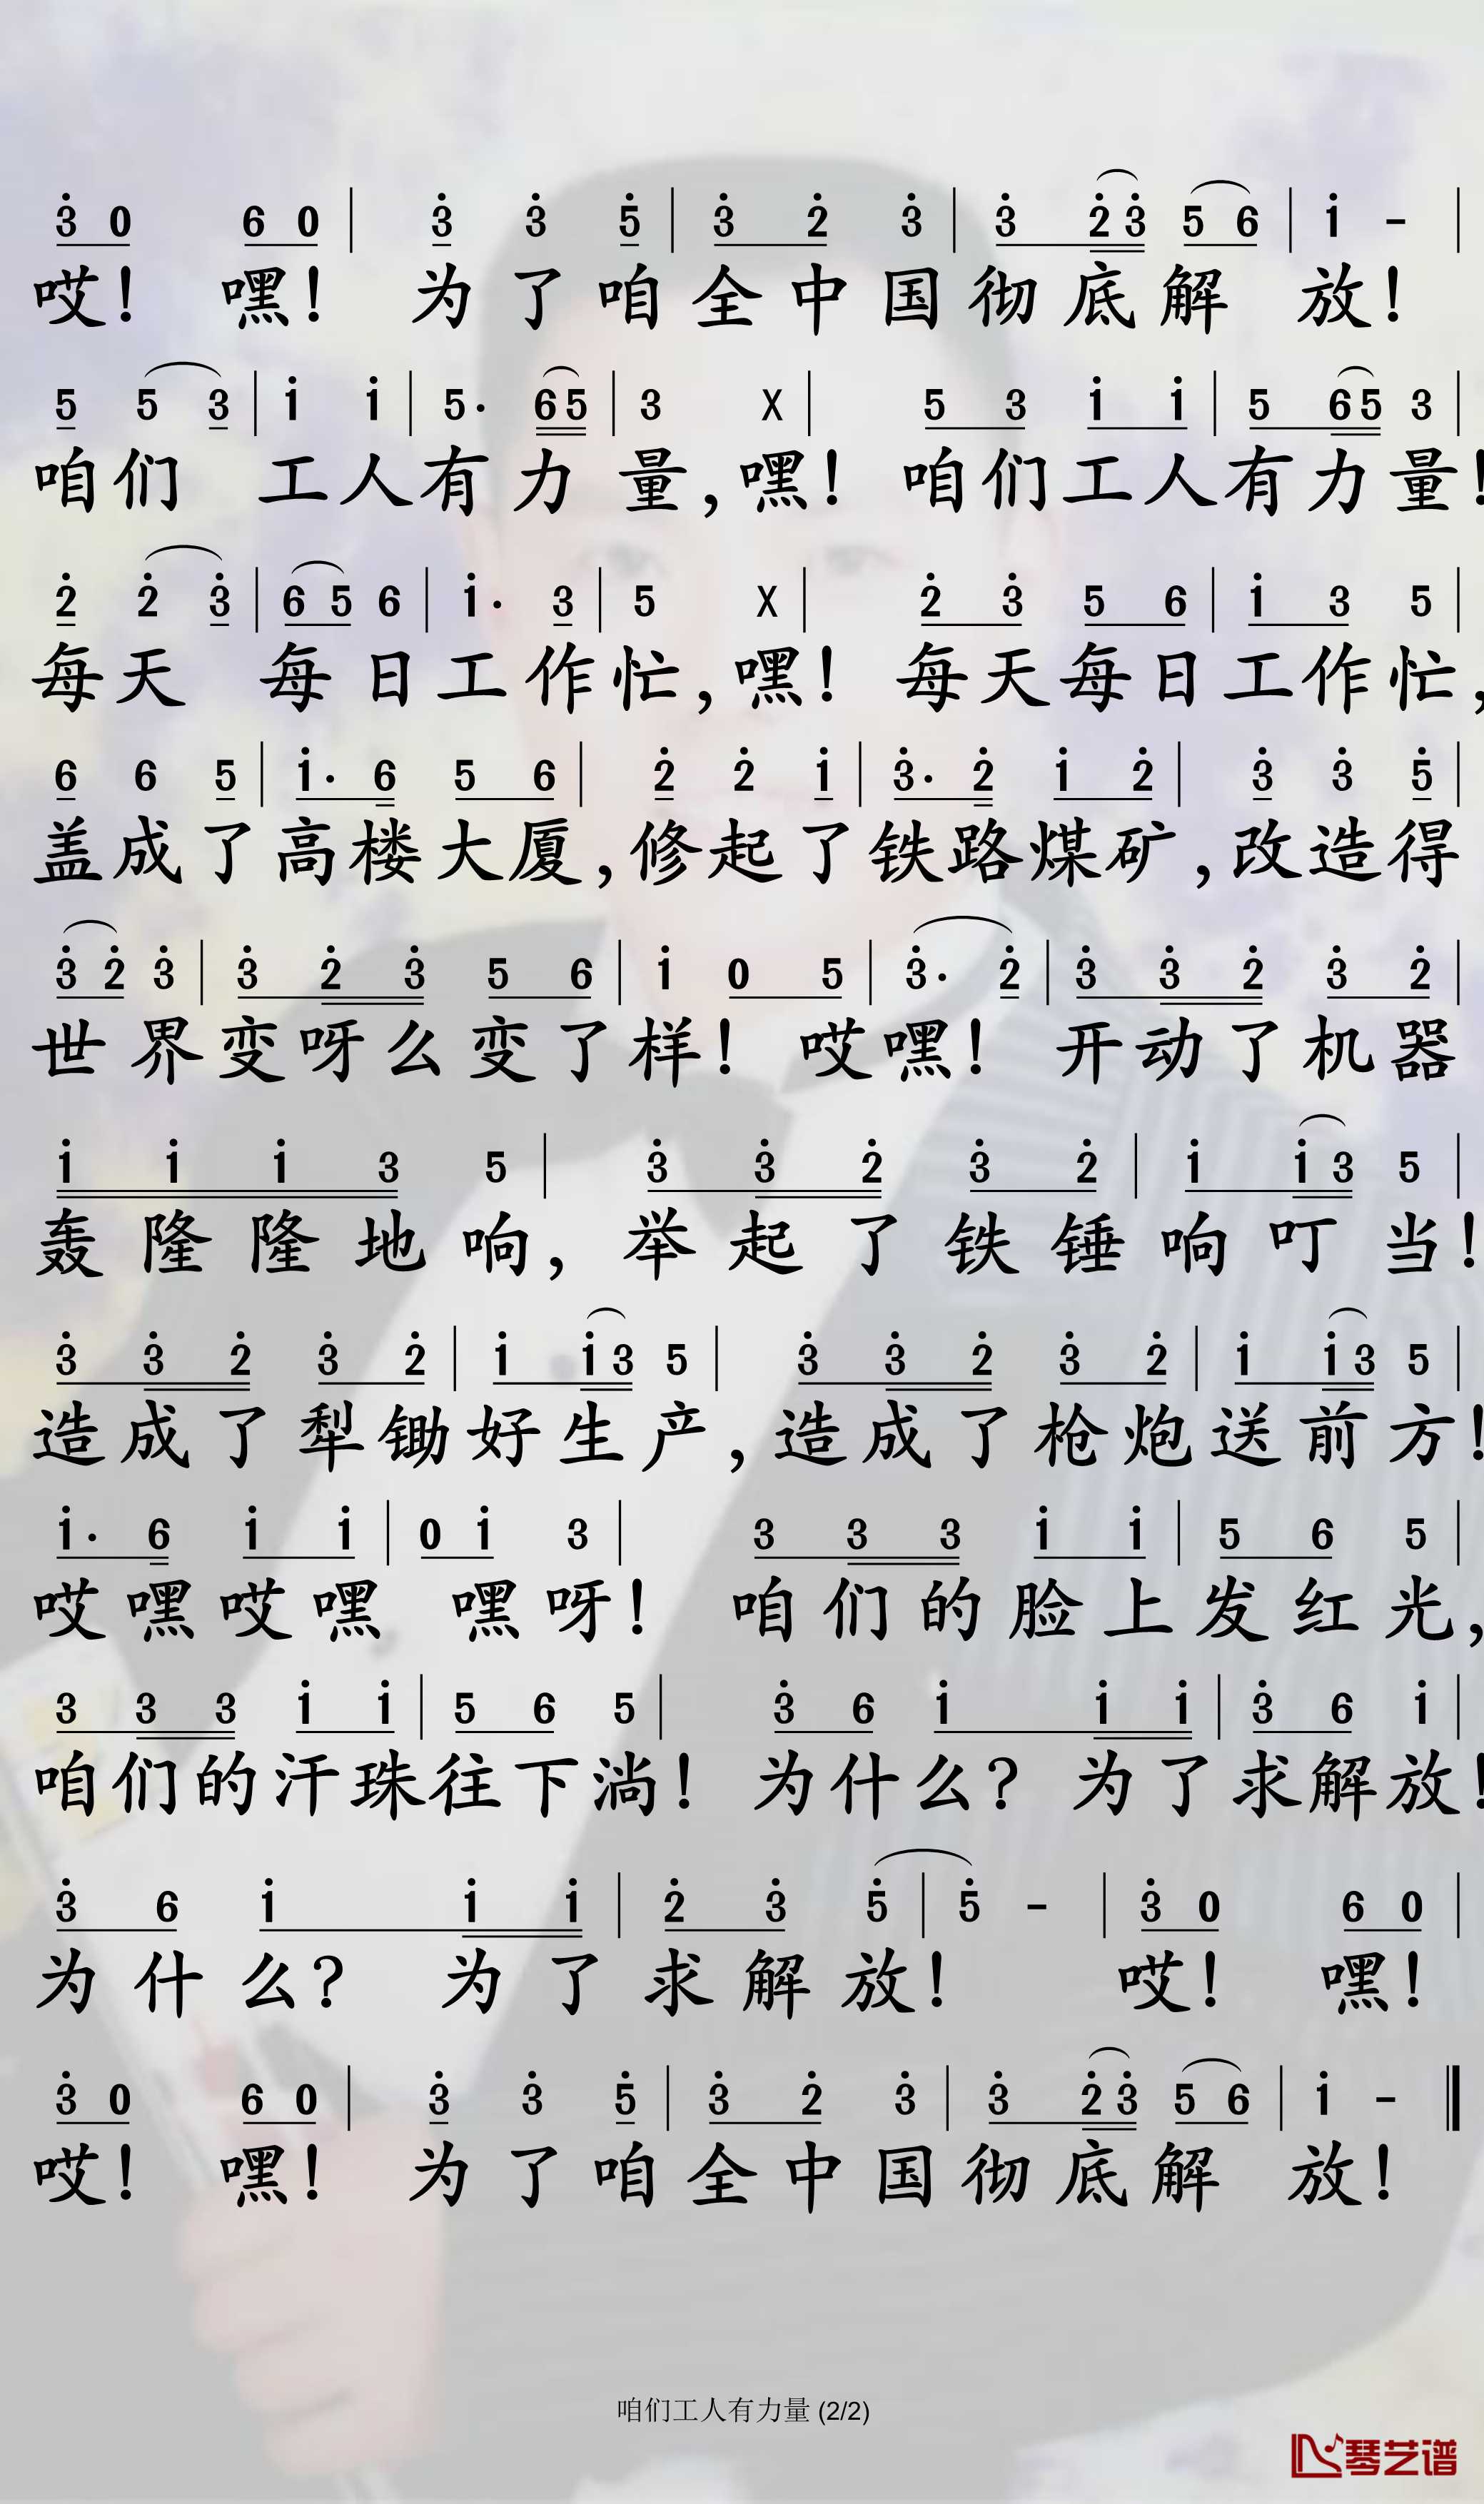 3̇ 0 6 0 | 3̇ 3̇ 5̇ | 3̇ 2̇ 3̇ | 3̇ 2̇ 3̇ 5 6 | 1̇ - |
哎! 嘿! 为了咱全中国彻底解放!
5 5 3 | 1̇ 1̇ | 5. 6 5 | 3 X | 5 3 1̇ 1̇ | 5 6 5 3 |
咱们 工人有力量,嘿! 咱们工人有力量!
2̇ 2̇ 3̇ | 6 5 6 | 1̇. 3 | 5 X | 2̇ 3̇ 5 6 | 1̇ 3 5 |
每天 每日工作忙,嘿! 每天每日工作忙,
6 6 5 | 1̇. 6 5 6 | 2̇ 2̇ 1̇ | 3̇. 2̇ 1̇ 2̇ | 3̇ 3̇ 5̇ |
盖成了高楼大厦,修起了铁路煤矿,改造得
3̇ 2̇ 3̇ | 3̇ 2̇ 3̇ 5 6 | 1̇ 0 5 | 3̇. 2̇ | 3̇ 3̇ 2̇ 3̇ 2̇ |
世界变呀么变了样! 哎嘿! 开动了机器
1̇ 1̇ 1̇ 3 5 | 3̇ 3̇ 2̇ 3̇ 2̇ | 1̇ 1̇ 3 5 |
轰隆隆地响, 举起了铁锤响叮当!
3̇ 3̇ 2̇ 3̇ 2̇ | 1̇ 1̇ 3 5 | 3̇ 3̇ 2̇ 3̇ 2̇ | 1̇ 1̇ 3 5 |
造成了犁锄好生产,造成了枪炮送前方!
1̇. 6 1̇ 1̇ | 0 1̇ 3 | 3 3 3 1̇ 1̇ | 5 6 5 |
哎嘿哎嘿 嘿呀! 咱们的脸上发红光,
3 3 3 1̇ 1̇ | 5 6 5 | 3̇ 6 1̇ 1̇ 1̇ | 3̇ 6 1̇ |
咱们的汗珠往下淌! 为什么? 为了求解放!
3̇ 6 1̇ 1̇ 1̇ | 2̇ 3̇ 5̇ | 5̇ - | 3̇ 0 6 0 |
为什么? 为了求解放! 哎! 嘿!
3̇ 0 6 0 | 3̇ 3̇ 5̇ | 3̇ 2̇ 3̇ | 3̇ 2̇ 3̇ 5 6 | 1̇ - ‖
哎! 嘿! 为了咱全中国彻底解放!
咱们工人有力量 (2/2)
琴艺谱